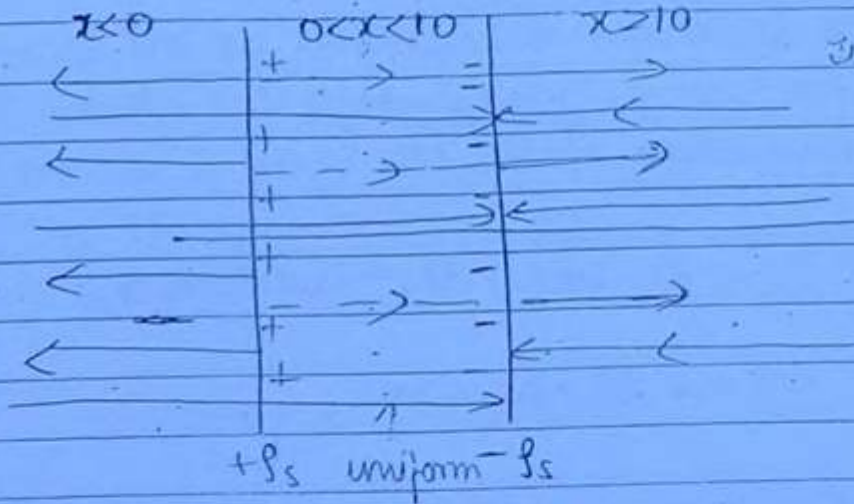 x<0 0<x<10 x>10
+ - -
+ -
+ -
+ -
+ -
+
+ρs uniform -ρs